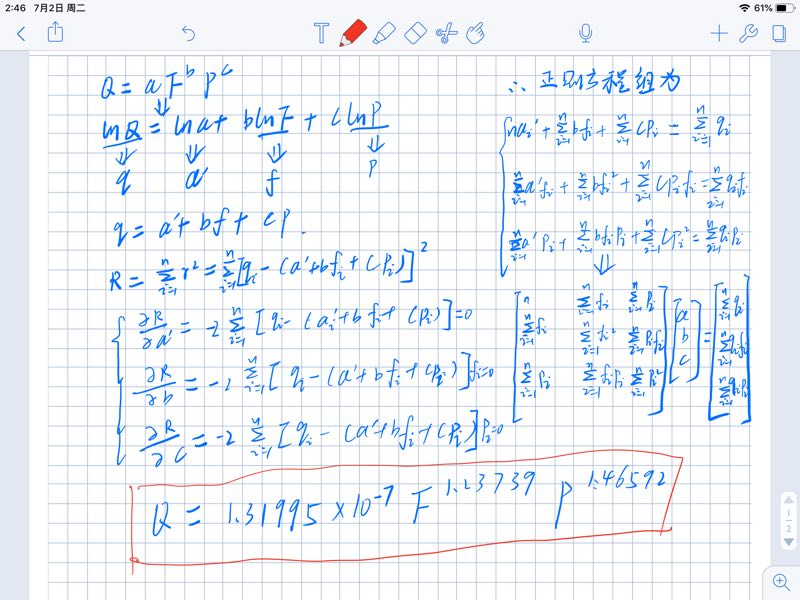 2:46 7月2日 周二
61%
Q = a F^b P^c
lnQ = lna + blnF + clnP
q a' f p
q = a' + bf + cp.
R = Σ_{i=1}^{n} r² = Σ_{i=1}^{n} [q_i - (a' + bf_i + cp_i)]²
∂R/∂a' = -2 Σ_{i=1}^{n} [q_i - (a_i' + b f_i + cp_i)] = 0
∂R/∂b = -2 Σ_{i=1}^{n} [q_i - (a' + b f_i + cp_i)] f_i = 0
∂R/∂c = -2 Σ_{i=1}^{n} [q_i - (a' + bf_i + cp_i)] p_i = 0
∴ 正则方程组为
na_i' + Σ_{i=1}^{n} bf_i + Σ_{i=1}^{n} cp_i = Σ_{i=1}^{n} q_i
Σ_{i=1}^{n} a'f_i + Σ_{i=1}^{n} bf_i² + Σ_{i=1}^{n} cp_i f_i = Σ_{i=1}^{n} q_i f_i
Σ_{i=1}^{n} a'p_i + Σ_{i=1}^{n} bf_i p_i + Σ_{i=1}^{n} cp_i² = Σ_{i=1}^{n} q_i p_i
n Σ_{i=1}^{n} f_i Σ_{i=1}^{n} p_i a Σ_{i=1}^{n} q_i
Σ_{i=1}^{n} f_i Σ_{i=1}^{n} f_i² Σ_{i=1}^{n} p_i f_i b = Σ_{i=1}^{n} q_i f_i
Σ_{i=1}^{n} p_i Σ_{i=1}^{n} f_i p_i Σ_{i=1}^{n} p_i² c Σ_{i=1}^{n} q_i p_i
Q = 1.31995 × 10^-7 F^1.23739 P^1.46592
1
2